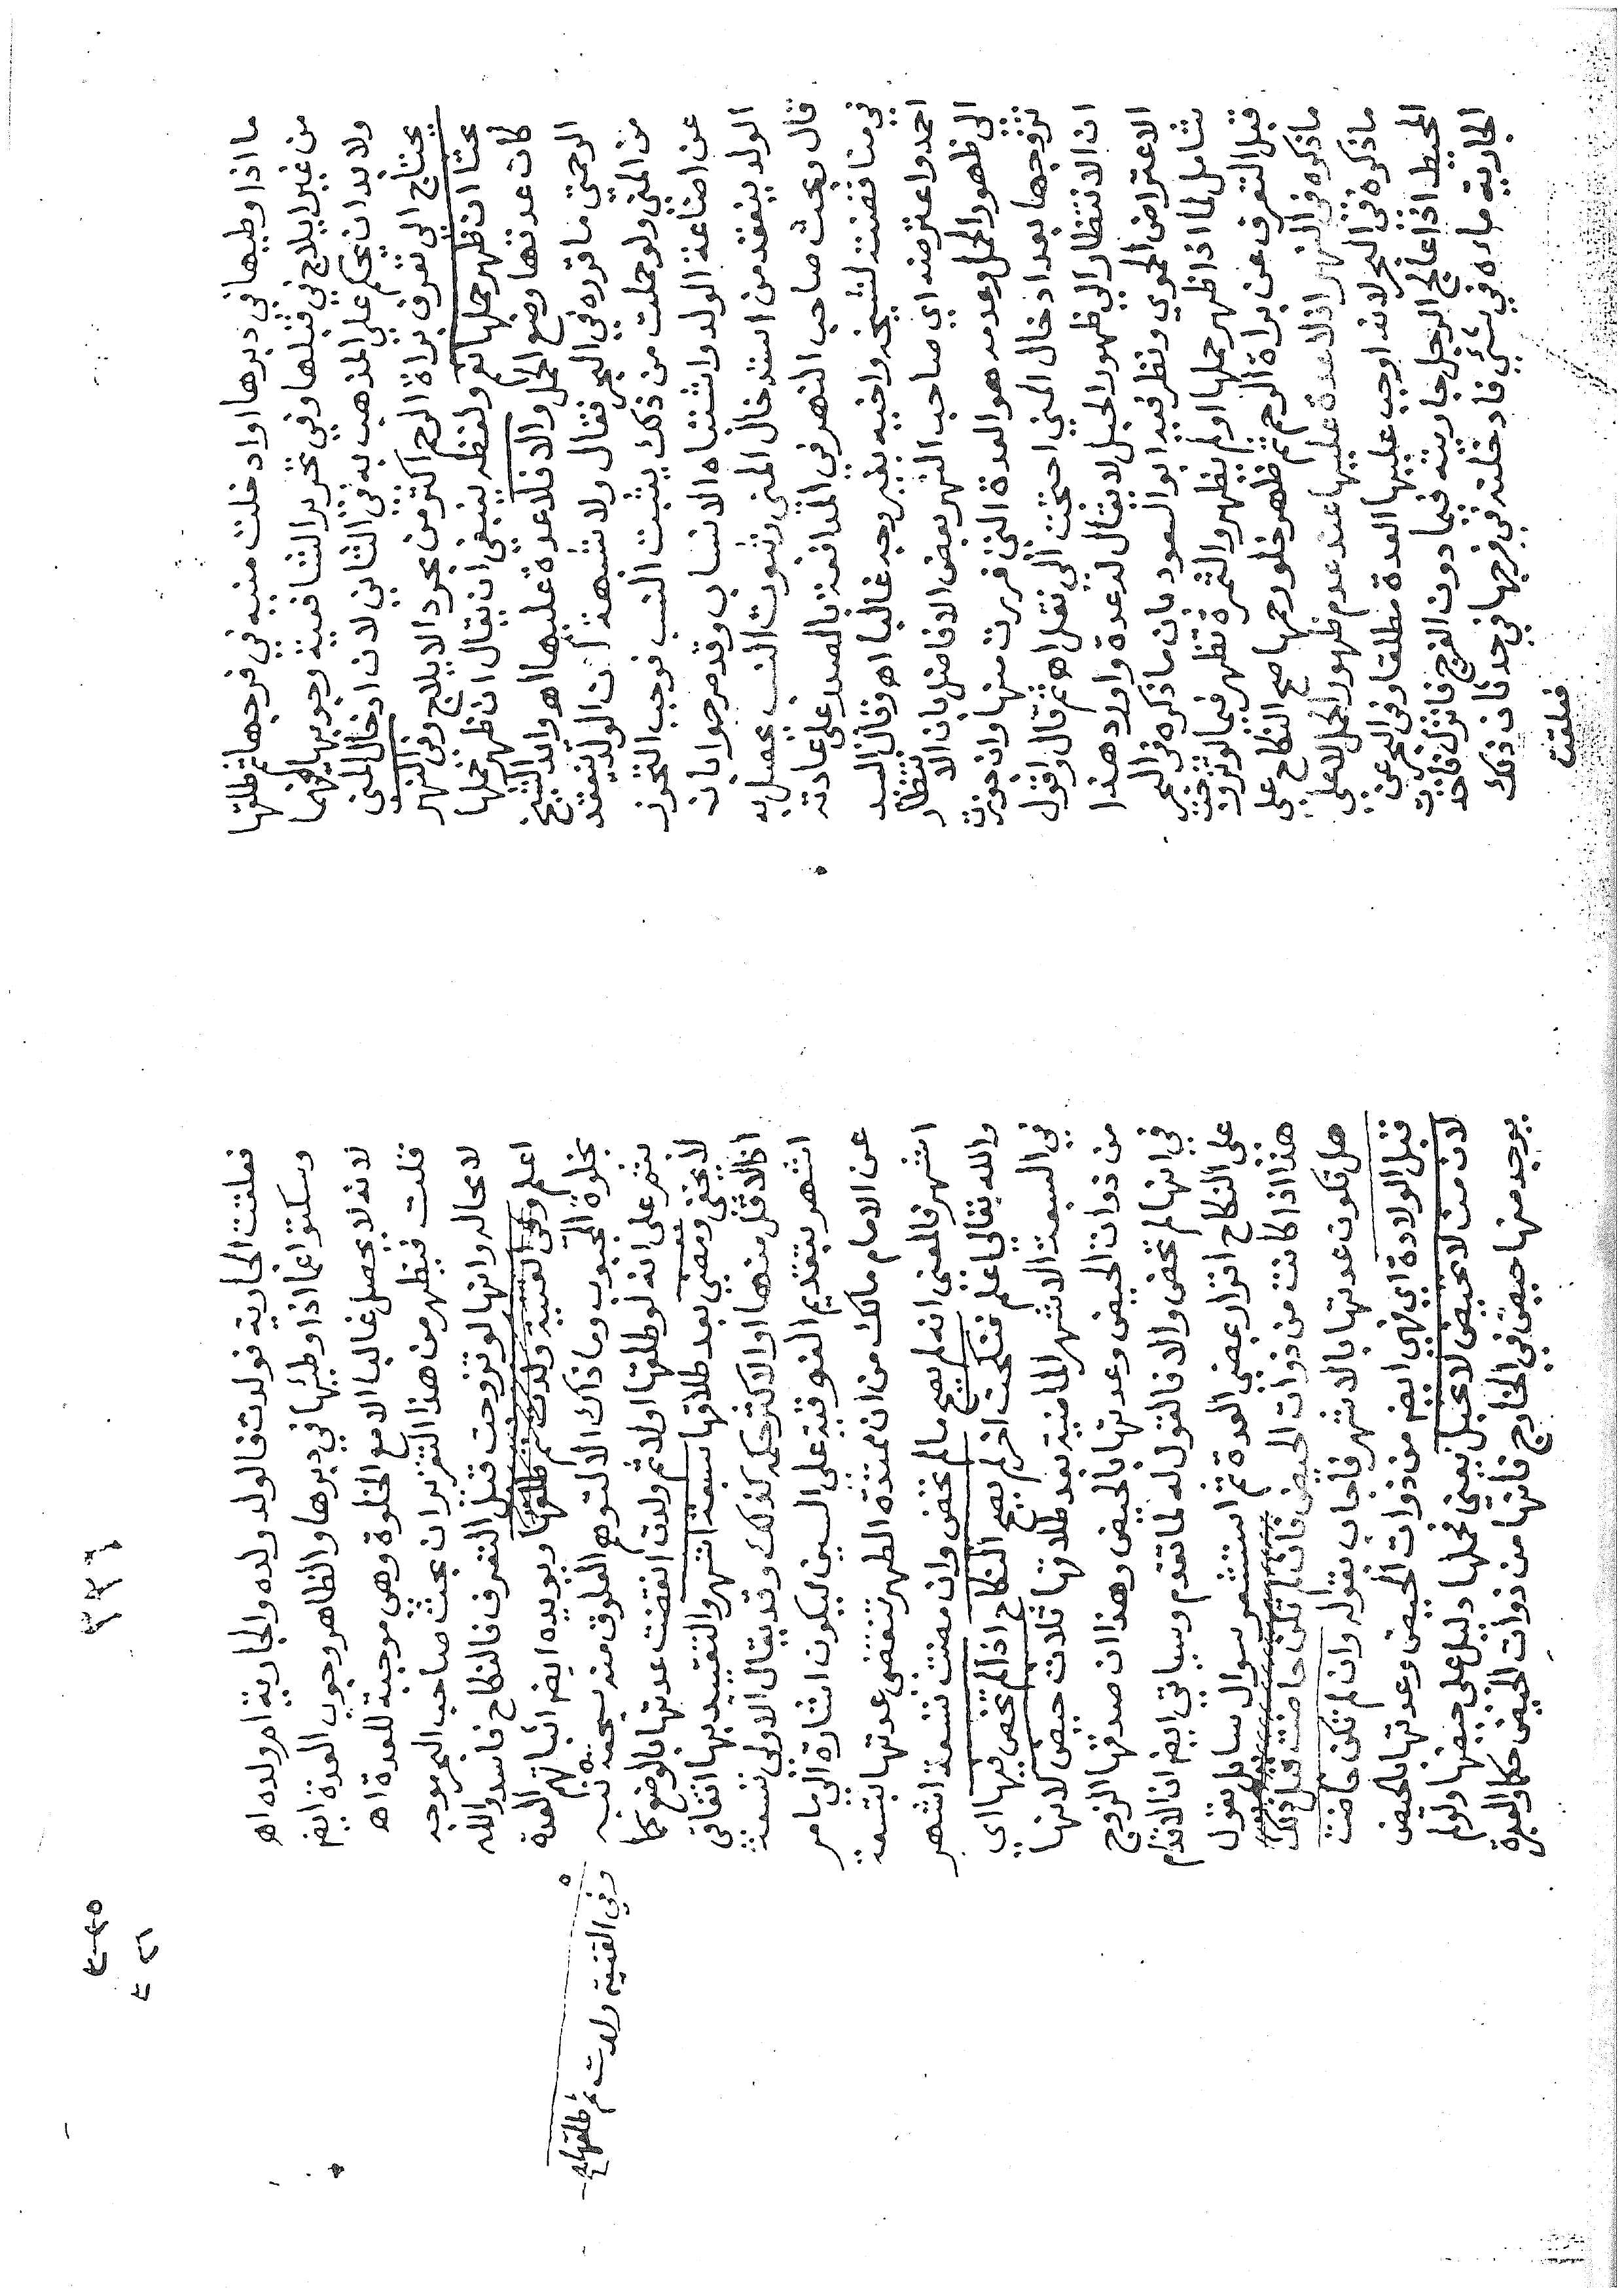 ما اذا وطيها في دبرها او ادخلت منيه في فرجها ثم طلقها
من غير ايلاج في قبلها وفي تحرير الشافعية وجوبها فيهما
ولا بد ان يحكم علي المذهب به في الثاني لان ادخال المني
يحتاج الى تعرف براة الرحم اكثر من مجرد الايلاج وفي النهر
بحثا ان ظهر حملها نعم ولفظه ينبغي ان يقال ان ظهر حملها
كان عدتها وضع الحمل والا فلا عدة عليها اه وايد الشيخ
الرحمتي ما قرره في البحر فقال ولا شبهة ان الولد ينعقد
من المني ولو حملت من ذلك يثبت النسب فوجب التحرز
عن اضاعة الولد واشتباه الانساب وقد مر جوابا بانه
الولد ينعقد من استدخال المني وثبوت النسب يحصل به
قال وبحث صاحب النهر في المدافعة بالصدر على عادته
في مناقضته لشيخه واخيه بغير وجه غالبا اه وقال السيد
احمد واعترضه اي صاحب النهر بعض الافاضل بان الانتظار
الى ظهور الحمل وعدمه هو العدة التي فررت منها وان جوزت
تزوجها بعد ادخال المني احتجت الى نقل اه ثم قال واقول
ان الانتظار الي ظهور الحبل لا يقال له عدة واورد هذا
الاعتراض الحموي ونظر فيه ابو السعود بان ما ذكره في البحر
شامل لما اذا ظهر حملها او لم يظهر والثمرة تظهر فيما لو تزوجت
قبل التعرف عن براة الرحم ثم ظهر خلو رحمها صح النكاح على
ما ذكره في النهر اذ لا عدة عليها عند عدم ظهور الحمل لا على
ما ذكره في البحر لانه اوجب عليها العدة مطلقا وفي البحر عن
المحيط اذا عالج الرجل جاريته فيما دون الفرج فانزل فاخذت
الجارية ماءه في شئي فادخلته في فرجها في حدثان ذلك
فعلقت
فعلقت الجارية فولدت فالولد ولده والجارية ام ولده اه
وسكتوا عما اذا وطيها في دبرها والظاهر وجوب العدة ايض
لانه لا يحصل غالبا الا مع الخلوة وهي موجبة للعدة اه
قلت فيظهر من هذا التقرير ان بحث صاحب البحر موجه
لا محاله وانها لو تزوجت قبل التعرف فالنكاح فاسد والله
اعلم وفي القنية ولدت ثم طلقها ويويده ايض اثباتهم العدة
بخلوة المجبوب وما ذاك الا لتوهم العلوق منه بسحقه
تنبيه
نفر على انه لو طلقها اولا ثم ولدت انقضت عدتها بالوضع كما
لا يخفى ومضي بعد طلاقها سبعة اشهر والتقييد بها اتفاقي
اذ الاقل منها او الاكثر حكمه كذلك وقد يقال الاولى تسعة
اشهر بتقديم الفوقية على السين ليكون اشارة الى ما مر
عن الامام مالك من ان ممتدة الطهر تنقضي عدتها بتسعة
اشهر فالمعنى انه لم يصح ما لم تحض وان مضت تسعة اشهر
والله تعالى اعلم فنكحت اخر لم يصح النكاح اذا لم تحض فيها اي
في السبعة الاشهر الماضية بعد طلاقها ثلاث حيض لانها
من ذوات الحيض وعدتها بالحيض وهذا ان صدقها الزوج
في انها لم تحض والا فالقول له لما تقدم وسياتي ايض ان الاقدام
على النكاح اقرار بمضي العدة ثم استشعر سوال سايل بقول
هذا اذا كانت من ذوات الحيض فان لم تكن حاضت قبل ذلك
هل تكون عدتها بالاشهر فاجاب بقوله وان لم تكن حاضت
قبل الولادة اي فهي ايض من ذوات الحيض وعدتها بالحيض
لان من لا تحيض لا تحبل يعني فحبلها دليل على حيضها ولو لم
يوجد منها حيض في الخارج فانها من ذوات الحيض حكما والعبرة
وفي القنية ولدت ثم طلقها الخ